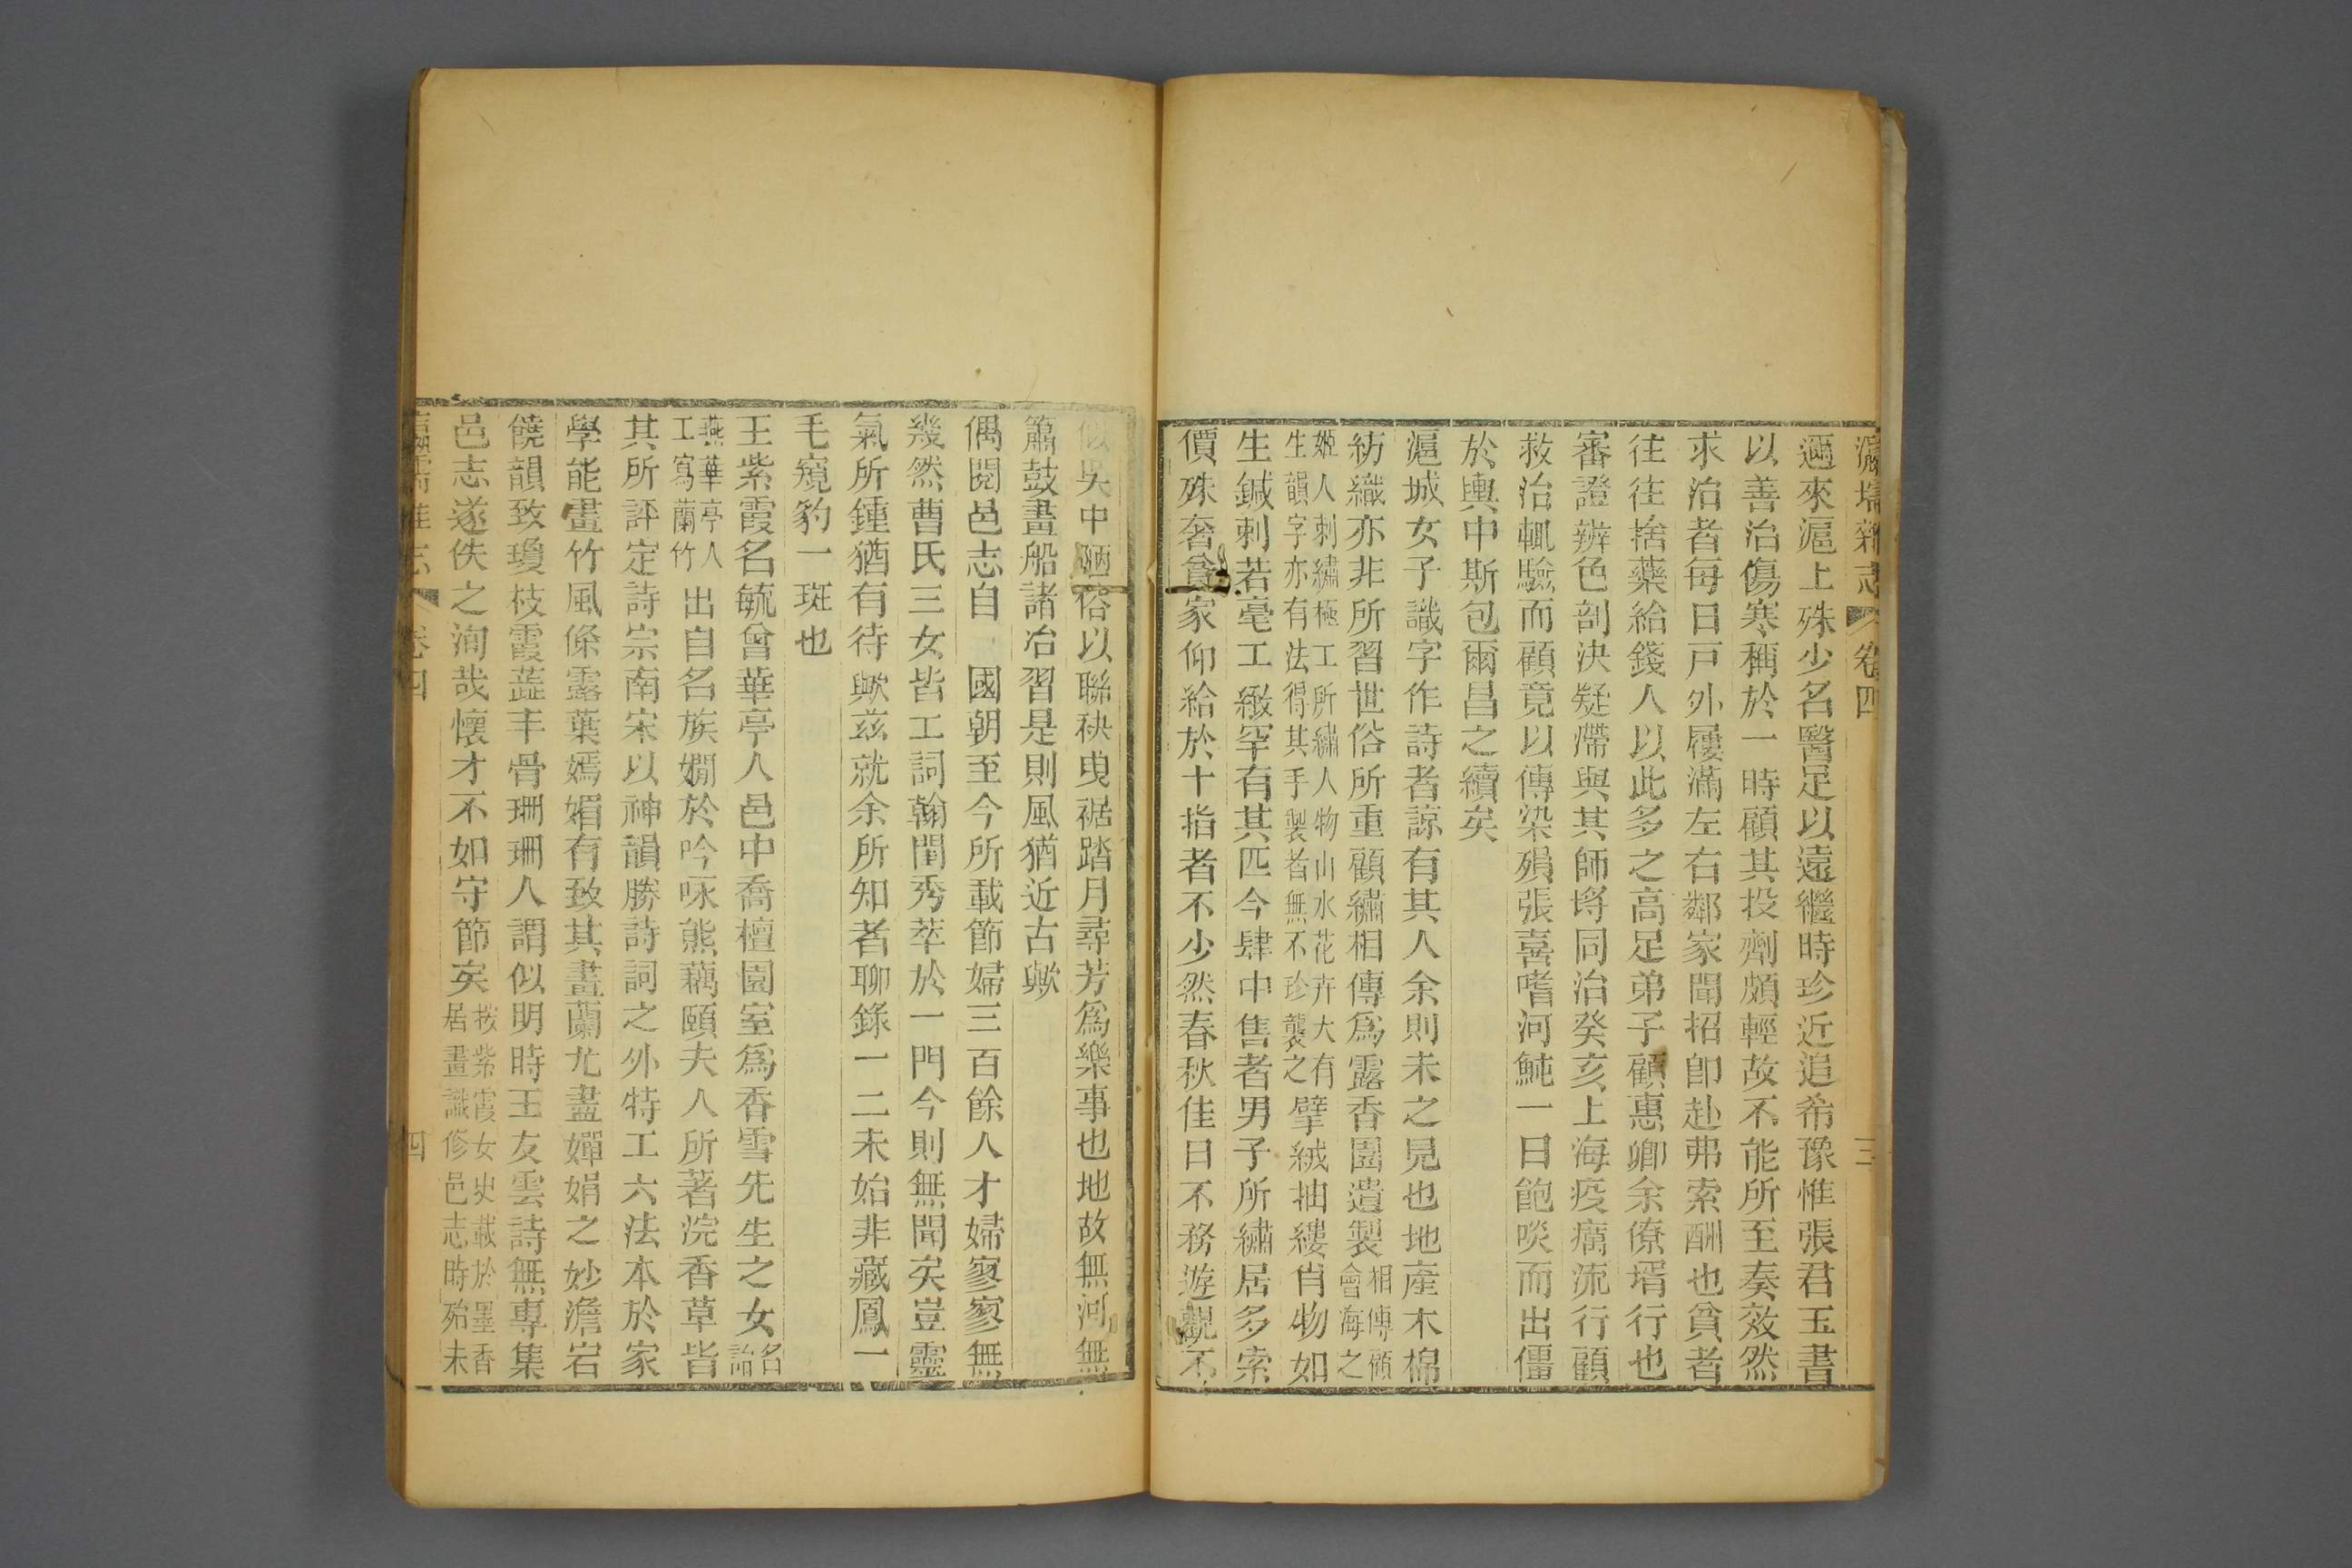 瀛壖雜志 卷四 三
邇來滬上殊少名醫足以遠繼時珍近追希豫惟張君玉書
以善治傷寒稱於一時顧其投劑頗輕故不能所至奏效然
求治者每日戸外屨滿左右鄰家聞招卽赴弗索酬也貧者
往往捨藥給錢人以此多之高足弟子顧惠卿余僚壻行也
審證辨色剖決疑滯與其師將同治癸亥上海疫癘流行顧
救治輒驗而顧竟以傳染殞張喜嗜河魨一日飽啖而出僵
於輿中斯包爾昌之續矣
滬城女子識字作詩者諒有其人余則未之見也地產木棉
紡織亦非所習世俗所重顧繡相傳爲露香園遺製相傳顧會海之
姬人刺繡極工所繡人物山水花卉大有生韻字亦有法得其手製者無不珍襲之擘絨抽縷肖物如
生鍼刺若毫工緻罕有其匹今肆中售者男子所繡居多索
價殊奢貧家仰給於十指者不少然春秋佳日不務遊觀不
似吳中陋俗以聯袂曳裾踏月尋芳爲樂事也地故無河無
簫鼓畫船諸冶習是則風猶近古歟
偶閱邑志自 國朝至今所載節婦三百餘人才婦寥寥無
幾然曹氏三女皆工詞翰閨秀萃於一門今則無聞矣豈靈
氣所鍾猶有待歟茲就余所知者聊錄一二未始非藏鳳一
毛窺豹一斑也
王紫霞名毓曾華亭人邑中喬檀園室爲香雪先生之女名詒
燕華亭人工寫蘭竹出自名族嫺於吟咏熊藕頤夫人所著浣香草皆
其所評定詩宗南宋以神韻勝詩詞之外特工六法本於家
學能畫竹風條露葉嫣媚有致其畫蘭尤盡嬋娟之妙澹宕
饒韻致瓊枝霞蕋丰骨珊珊人謂似明時王友雲詩無專集
邑志遂佚之洵哉懷才不如守節矣按紫霞女史載於墨香居畫識修邑志時殆未
瀛壖雜志 卷四 四